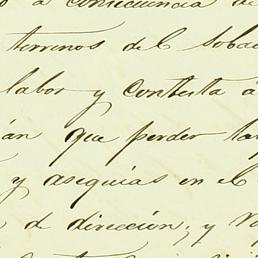 á consecuencia de
terrenos del Soba
labor y contesta á
án que perder la
y asequias en el
de dirección, y